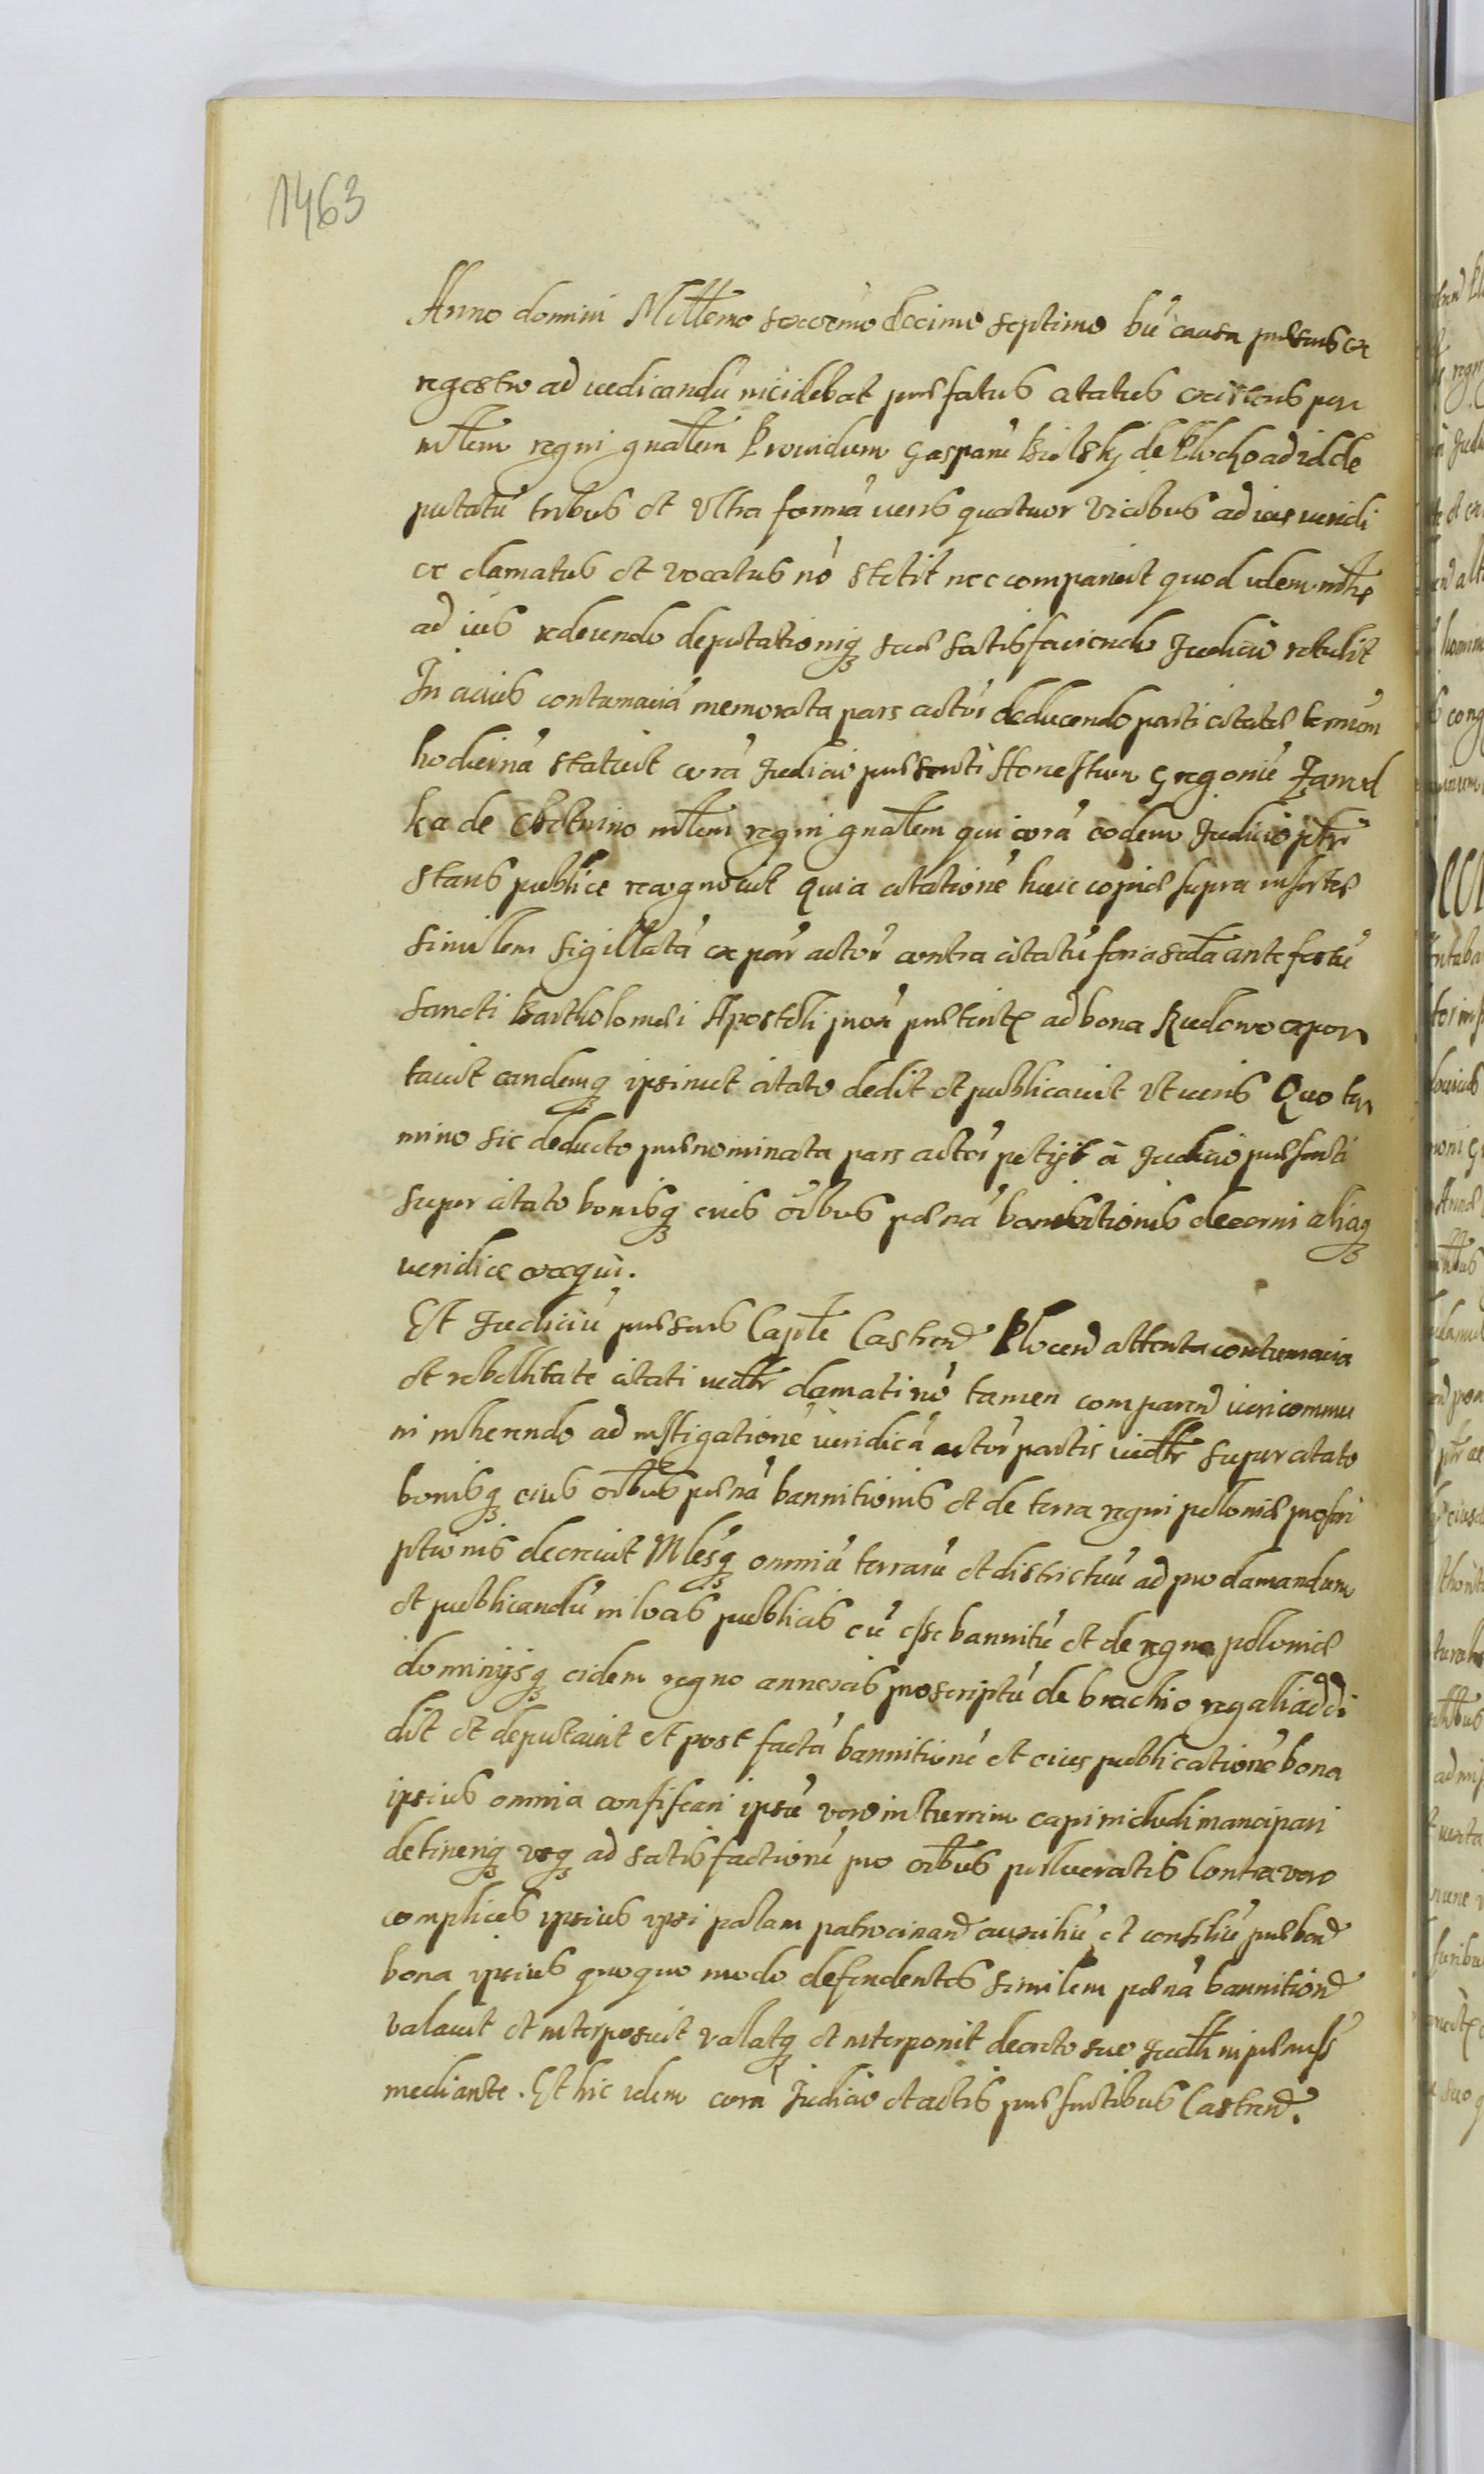 1463
Anno domini Millemo sexcemo decimo septimo bu causa præsens ex
regestro ad iudicandu incidebat præfatus citatus existens per
mlem regni gnalem Providum Gasparu Bielsky de Plocho ad id de
putatu tribus et Ultra forma iuris quatuor vicibus ad ius iuridi
ce clamatus et vocatus no stetit nec comparuit quod idem
ad ius redeundo deputationiq suæ satisfaciendo Judicio retulit
In cuius contumacia memorata pars actor deducendo parti citatæ terminum
hodierna statuit cora Judicio præsenti Honestum Gregoriu
ka de mlem regni gnalem qui cora eodem Judicio
stans publice recognovit Quia citatione huic copiæ supra insertæ
similem sigillata ex par actor contra citatu feria scda ante festu
sancti Bartholomæi Apostoli ad bona Rudowo appor
tavit eandemq ipsimet citato dedit et publicavit Ut iuris Quo ter
mino sic deducto prænominata pars actor petijt a Judicio præsenti
super citato bonisq eius oibus pœna bannitionis decerni aliaq
iuridice exequi.
Et Judiciu præsens Caple Castren Plocen attenta contumacia
et rebellitate citati clamati no tamen comparen iuri commu
ni inherendo ad instigatione iuridica actor partis super citato
bonisq eius oibus pœna bannitionis et de terra regni poloniæ proscri
ptionis decrevit Mlesq omniu terraru et districtuu ad proclamandum
et publicandu in locis publicis eu esse bannitu et de regno poloniæ
dominijsq eidem regno annexis proscriptu de brachio regali addi
dit et deputavit et post facta bannitione et eius publicatione bona
ipsius omnia confiscari ipsu vero in turrim capi includi mancipari
detineriq usq ad satisfactione pro oibus Contra vero
complices ipsius ipsi palam patrocinan auxiliu et consiliu præben
bona ipsius quoquo modo defendentes similem pœna bannition
valavit et interposuit valatq et interponit decreto suo
mediante. Et hic idem cora Judicio et actis præsentibus Castren.